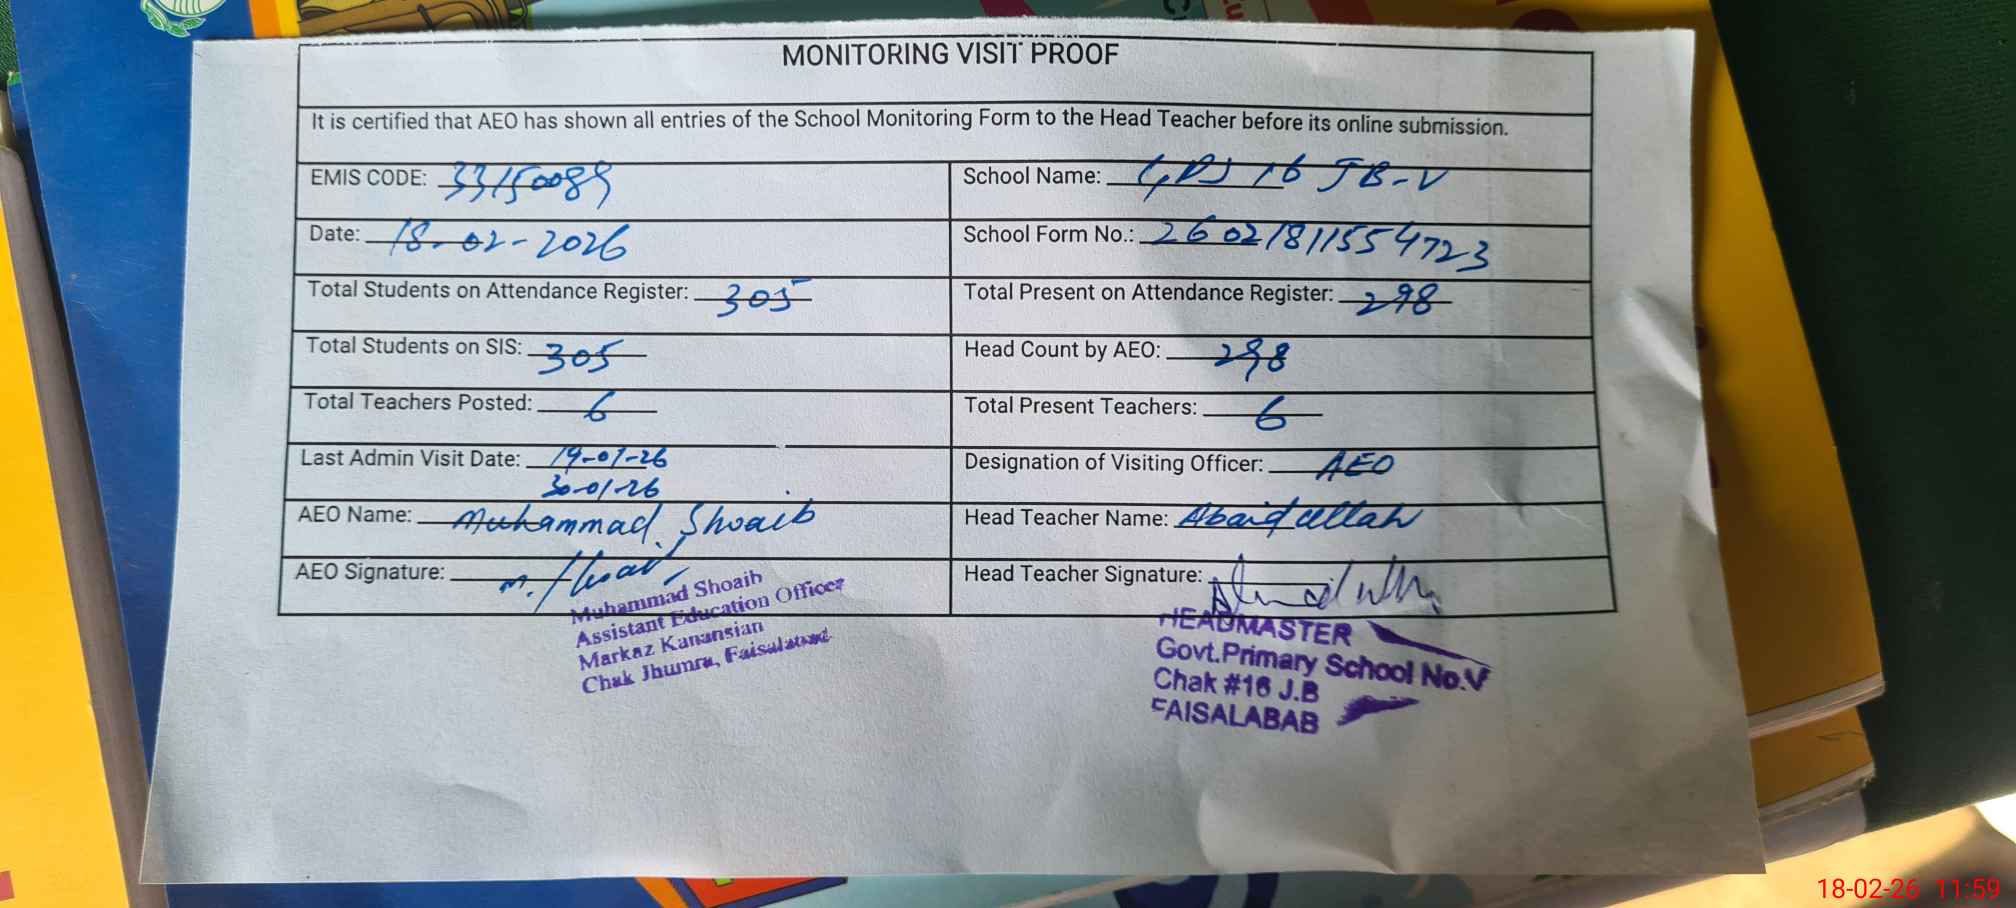 MONITORING VISIT PROOF
It is certified that AEO has shown all entries of the School Monitoring Form to the Head Teacher before its online submission.
EMIS CODE: 33150089
School Name: GPS 16 JB-V
Date: 18-02-2026
School Form No.: 26021811554723
Total Students on Attendance Register: 305
Total Present on Attendance Register: 298
Total Students on SIS: 305
Head Count by AEO: 298
Total Teachers Posted: 6
Total Present Teachers: 6
Last Admin Visit Date: 19-01-26
30-01-26
Designation of Visiting Officer: AEO
AEO Name: Muhammad Shoaib
Head Teacher Name: Abaidullah
AEO Signature: M. Shoaib
Head Teacher Signature:
Muhammad Shoaib
Assistant Education Officer
Markaz Kanansian
Chak Jhumra, Faisalabad
HEADMASTER
Govt.Primary School No.V
Chak #16 J.B
FAISALABAB
18-02-26 11:59